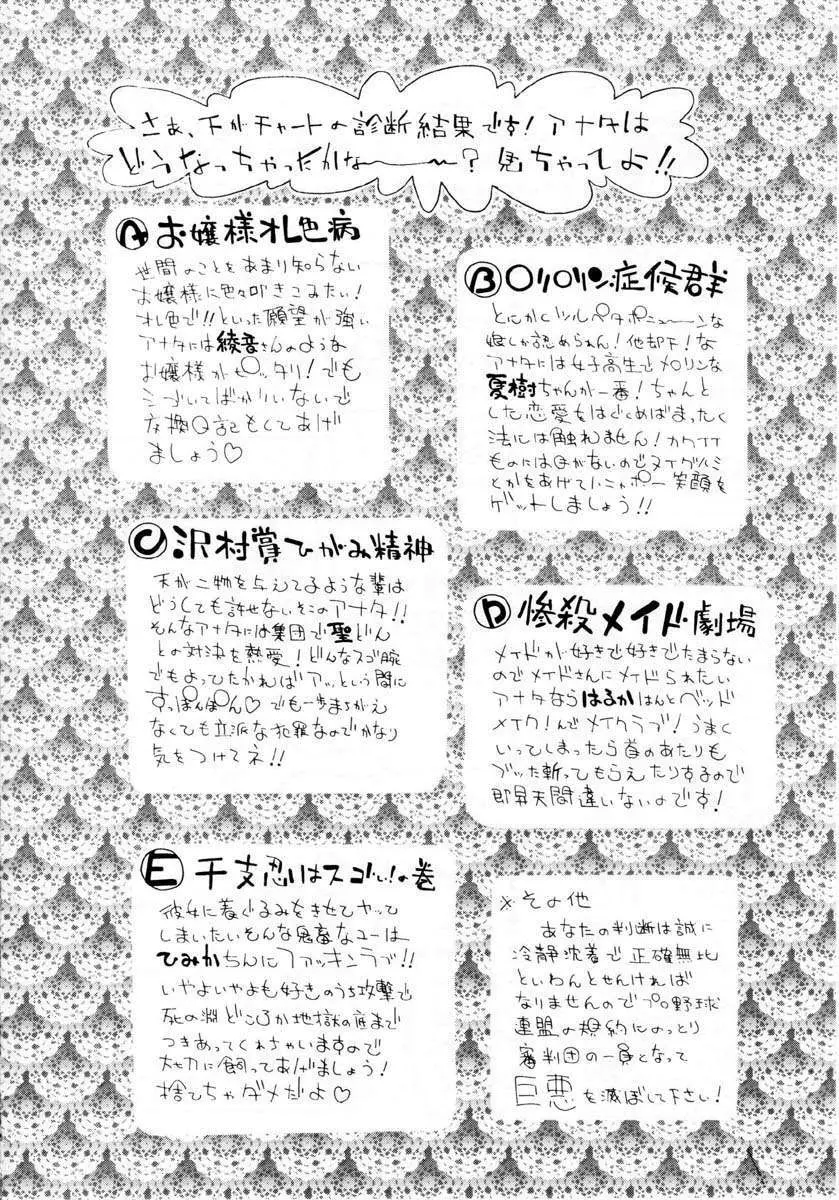 さあ、下がチャートの診断結果です！アナタは
どうなっちゃったかな〜〜？見ちゃってしょ!!
A お嬢様オレ色病
世間のことをあまり知らない
お嬢様に色々叩きこみたい！
オレ色で!!といった願望が強い
アナタには綾音さんのような
お嬢様がピッタリ！でも
こづいてばかりいないで
交換日記もしてあげ
ましょう♡
B ○リ○リン症候群
とにかくツルペタポニューーンな
娘しか認められん！他却下！な
アナタには女子高生でメロリンな
夏樹ちゃんが一番！ちゃんと
した恋愛をはぐくめばまったく
法には触れません！カワイイ
ものには目がないのでヌイグルミ
とかをあげて 笑顔を
ゲットしましょう!!
C 沢村賞ひがみ精神
天が二物を与えてるような輩は
どうしても許せないそこのアナタ!!
そんなアナタには集団で聖どん
との対決を熱愛！どんなスゴ腕
でもよってたかればアッという間に
すっぽんぽん♡でも一歩まちがえ
なくても立派な犯罪なのでかなり
気をつけてネ!!
D 惨殺メイド劇場
メイドが好きで好きでたまらない
のでメイドさんにメイドられたい
アナタならはるかはんとベッド
メイク！んでメイクラブ！うまく
いってしまったら首のあたりも
ブッた斬ってもらえたりするので
即昇天間違いないのです！
E 干支忍りはスゴい！の巻
彼女に着ぐるみをきせてヤッて
しまいたいそんな鬼畜なユーは
ひみかちんにファッキンラブ!!
いやよいやよも好きのうち攻撃で
死の淵どころか地獄の底まで
つきあってくれちゃいますので
大切に飼ってあげましょう！
捨てちゃダメだよ♡
※その他
あなたの判断は誠に
冷静沈着で正確無比
といわんとせんければ
なりませんのでプロ野球
連盟の規約にのっとり
審判団の一員となって
巨悪を滅ぼして下さい！